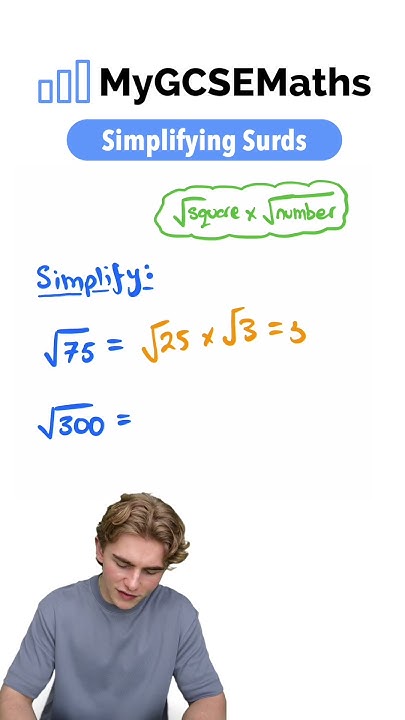 MyGCSEMaths
Simplifying Surds
√square × √number
Simplify:
√75 = √25 × √3 =
√300 =